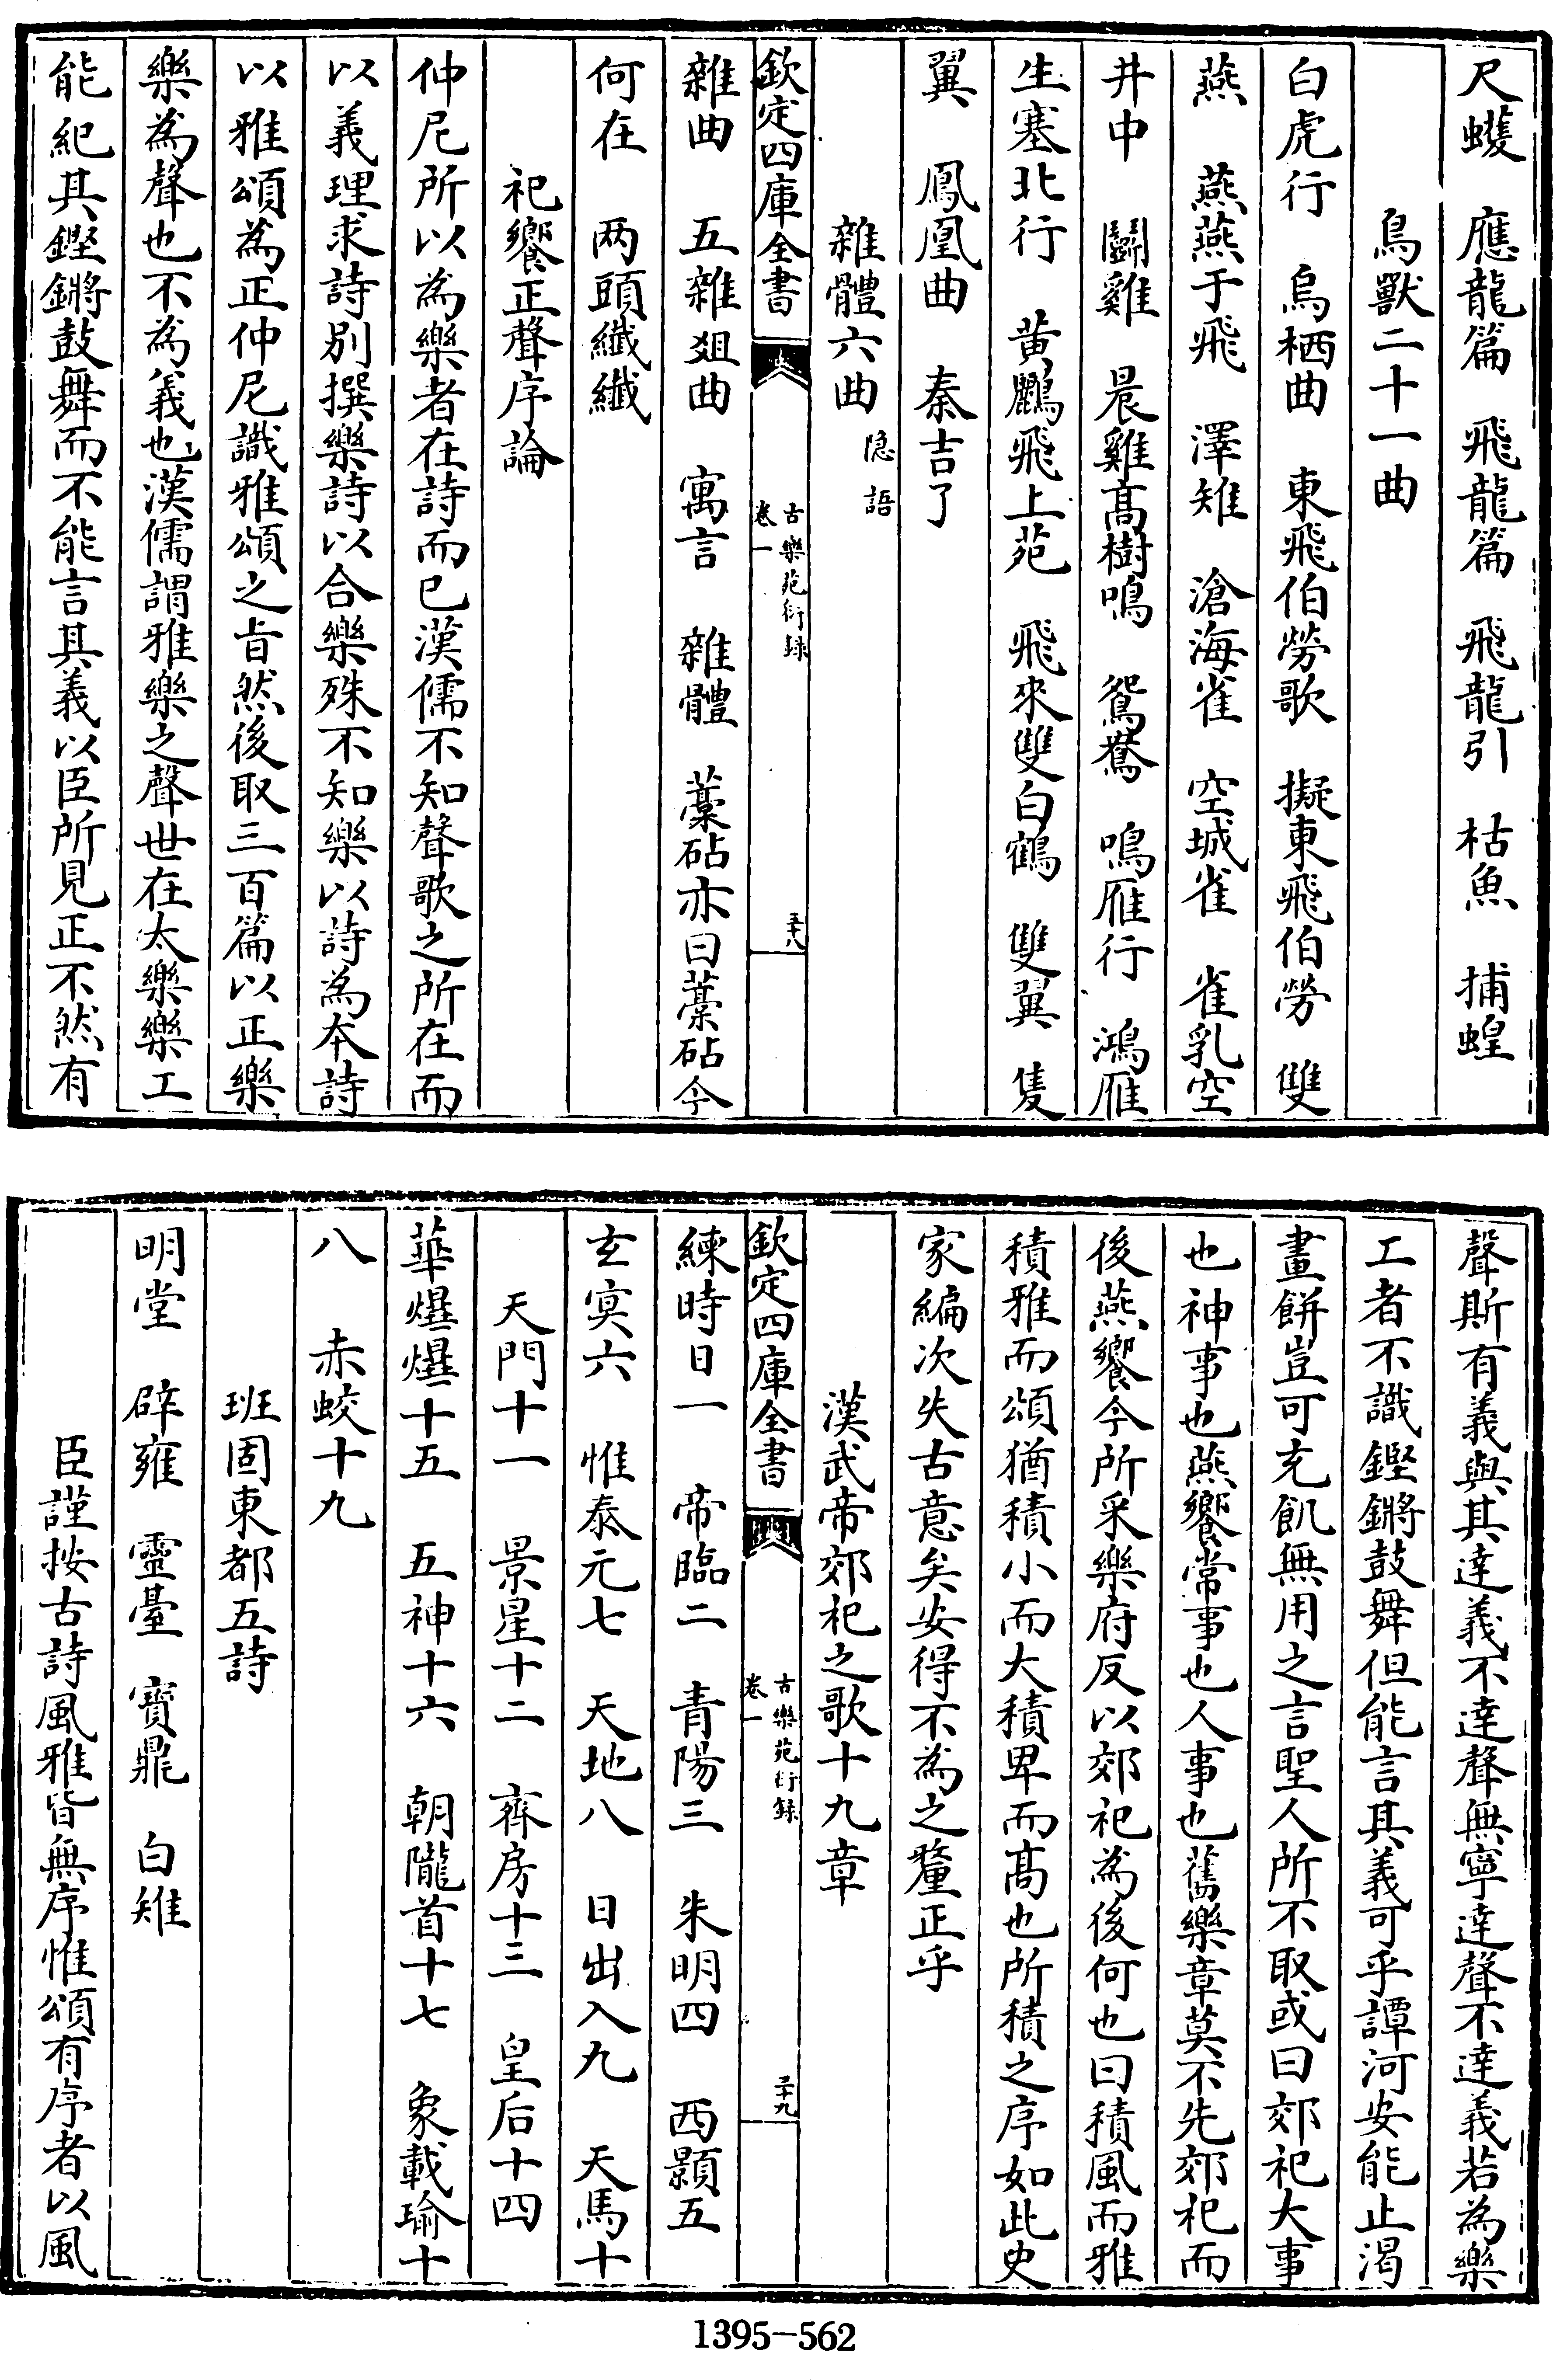 尺蠖　應龍篇　飛龍篇　飛龍引　枯魚　捕蝗
鳥獸二十一曲
白虎行　烏栖曲　東飛伯勞歌　擬東飛伯勞　雙
燕　燕燕于飛　澤雉　滄海雀　空城雀　雀乳空
井中　鬭雞　晨雞髙樹鳴　鴛鴦　鳴雁行　鴻雁
生塞北行　黄鸝飛上苑　飛來雙白鶴　雙翼　隻
翼　鳳凰曲　秦吉了
雜體六曲　隐語
欽定四庫全書
古樂苑衍録
卷一
三十八
雜曲　五雜爼曲　寓言　雜體　藁砧亦曰藁砧今
何在　两頭纎纎
祀饗正聲序論
仲尼所以為樂者在詩而已漢儒不知聲歌之所在而
以義理求詩别撰樂詩以合樂殊不知樂以詩為本詩
以雅頌為正仲尼識雅頌之㫖然後取三百篇以正樂
樂為聲也不為義也漢儒謂雅樂之聲世在太樂樂工
能紀其鏗鏘鼓舞而不能言其義以臣所見正不然有
聲斯有義與其達義不達聲無寧達聲不達義若為樂
工者不識鏗鏘鼓舞但能言其義可乎譚河安能止渴
畫餅豈可充飢無用之言聖人所不取或曰郊祀大事
也神事也燕饗常事也人事也舊樂章莫不先郊祀而
後燕饗今所采樂府反以郊祀為後何也曰積風而雅
積雅而頌猶積小而大積卑而髙也所積之序如此史
家編次失古意矣安得不為之釐正乎
漢武帝郊祀之歌十九章
欽定四庫全書
古樂苑衍録
卷一
三十九
練時日一　帝臨二　青陽三　朱明四　西顥五
玄冥六　惟泰元七　天地八　日出入九　天馬十
天門十一　景星十二　齊房十三　皇后十四
華爗爗十五　五神十六　朝隴首十七　象載瑜十
八　赤蛟十九
班固東都五詩
明堂　辟雍　靈臺　寳鼎　白雉
臣謹按古詩風雅皆無序惟頌有序者以風
1395-562